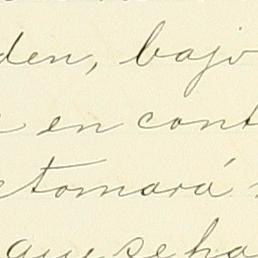 den, bajo
en cont
tomará
que se ha